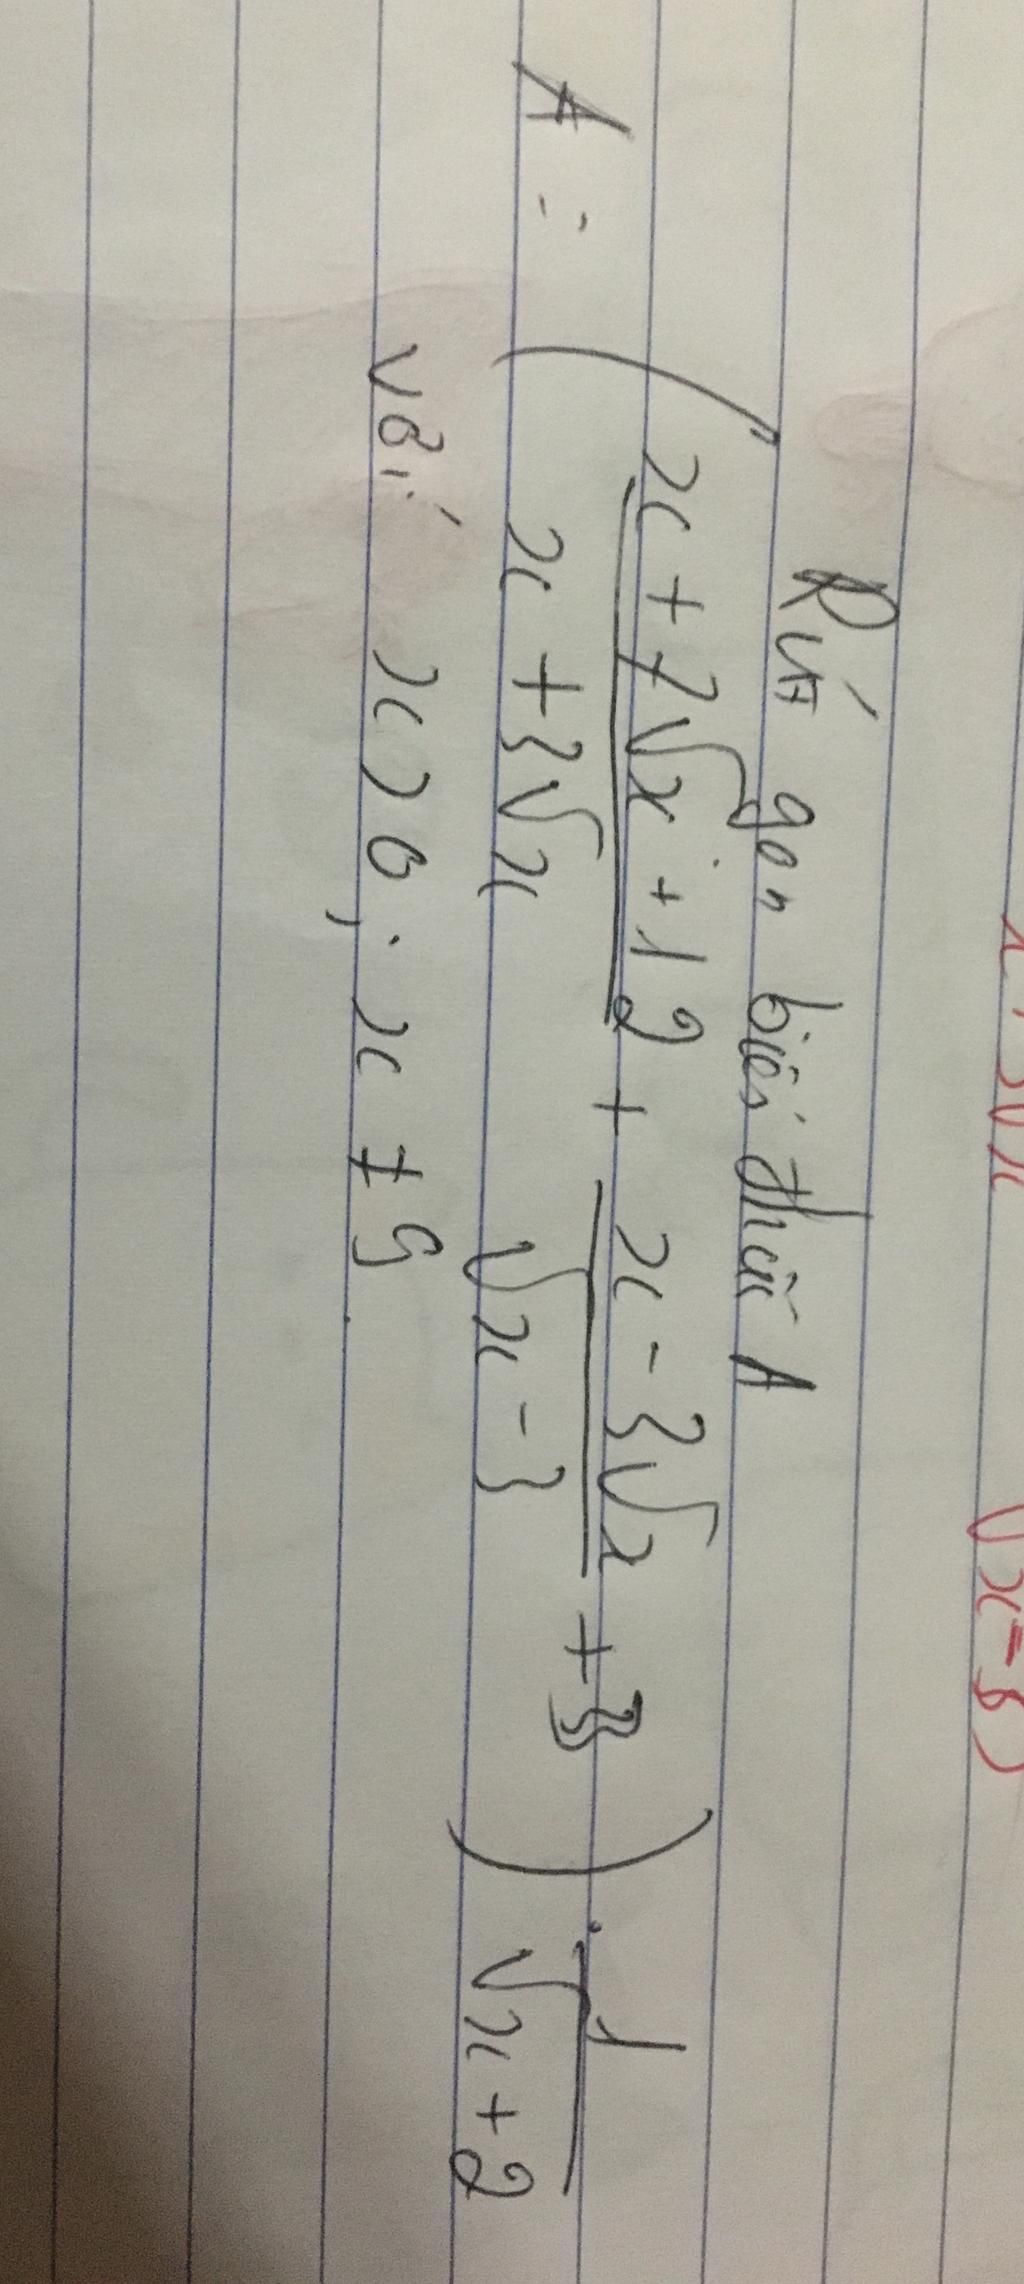 Rút gọn biểu thức A
A = ( (x + 7√x + 12)/(x + 3√x) + (x - 3√x)/(√x - 3) + 3 ) . 1/(√x + 2)
với x > 0 ; x ≠ 9.